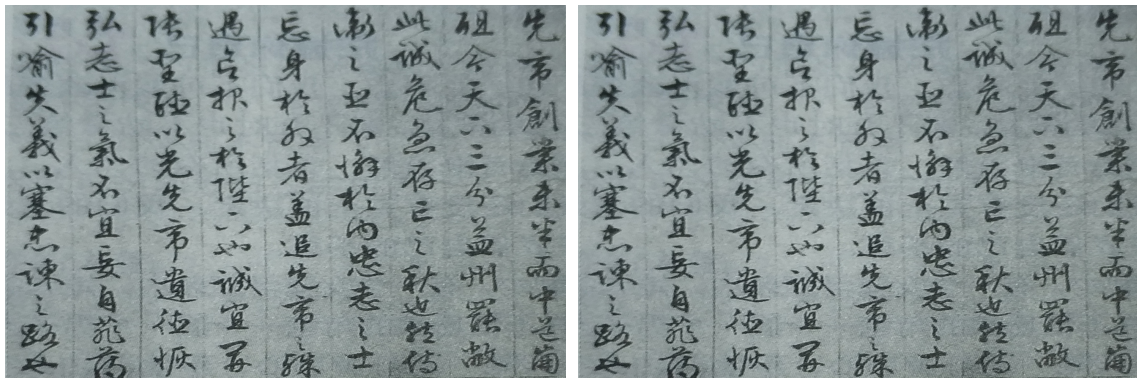 先帝創業未半而中道崩
殂今天下三分益州罷敝
此誠危急存亡之秋也然侍
衛之臣不懈於內忠志之士
忘身於外者蓋追先帝之殊
遇欲報之於陛下也誠宜開
張聖聽以光先帝遺德恢
弘志士之氣不宜妄自菲薄
引喻失義以塞忠諫之路也
先帝創業未半而中道崩
殂今天下三分益州罷敝
此誠危急存亡之秋也然侍
衛之臣不懈於內忠志之士
忘身於外者蓋追先帝之殊
遇欲報之於陛下也誠宜開
張聖聽以光先帝遺德恢
弘志士之氣不宜妄自菲薄
引喻失義以塞忠諫之路也